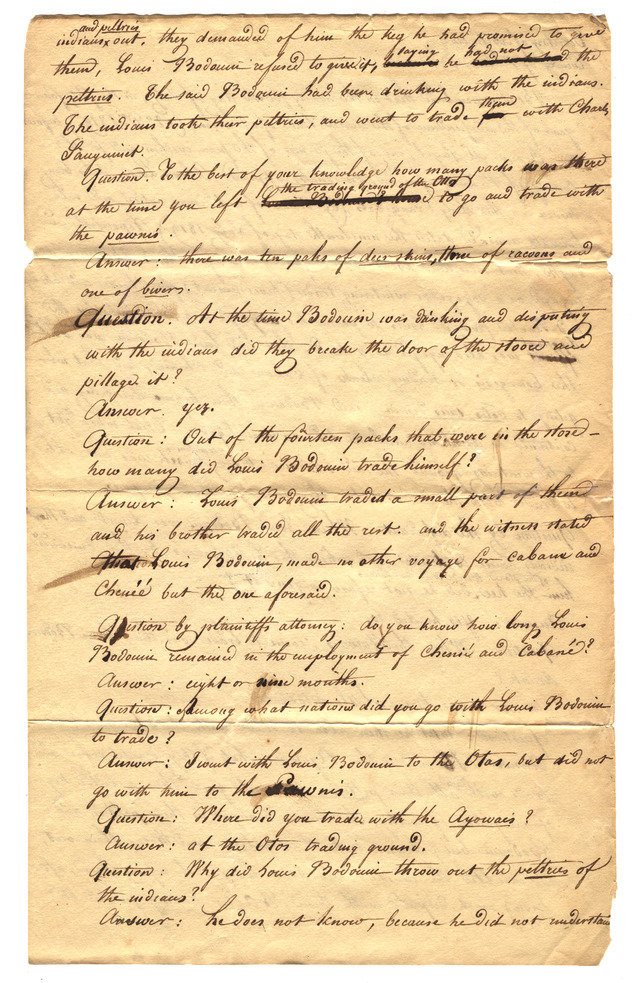 and peltries
indians out, they demanded of him the keg he had promised to give
them, Louis Bodouin refused to give it, saying he had not had the
peltries. The said Bodouin had been drinking with the indians.
The indians took their peltries, and went to trade them with Charles
Sanguinet.
Question. To the best of your knowledge how many packs was there
at the time you left the trading ground of the Otos to go and trade with
the pawnis.
Answer: there was ten paks of deer skins, three of racoons and
one of bivers.
Question. At the time Bodouin was drinking and disputing
with the indians did they breake the door of the stoore and
pillage it?
Answer. yez.
Question: Out of the fourteen packs that were in the store-
how many did Louis Bodouin trade himself?
Answer: Louis Bodouin traded a small part of them
and his brother traded all the rest. and the witness stated
that Louis Bodouin, made no other voyage for Cabane and
Cheniè but the one aforesaid.
Question by plaintiffs attorney: do you know how long Louis
Bodouin remained in the employment of Cheniè and Cabané?
Answer: eight or nine months.
Question: Among what nations did you go with Louis Bodouin
to trade?
Answer: I went with Louis Bodouin to the Otos, but did not
go with him to the Pawnis.
Question: Where did you trade with the Ayowais?
Answer: at the Otos trading ground.
Question: Why did Louis Bodouin throw out the peltries of
the indians?
Answer: he does not know, because he did not understan